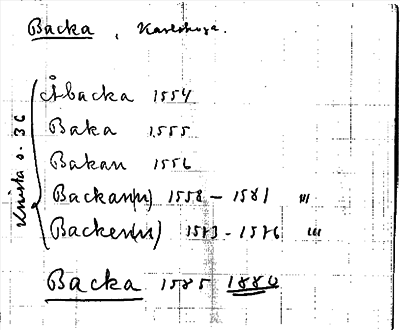 Backa, Karlskoga.
Knista s. 36
Åbacka 1554
Baka 1555
Bakan 1556
Backan(n) 1558 - 1581 "'
Backen(n) 1573 - 1576 "'
Backa 1585 1880